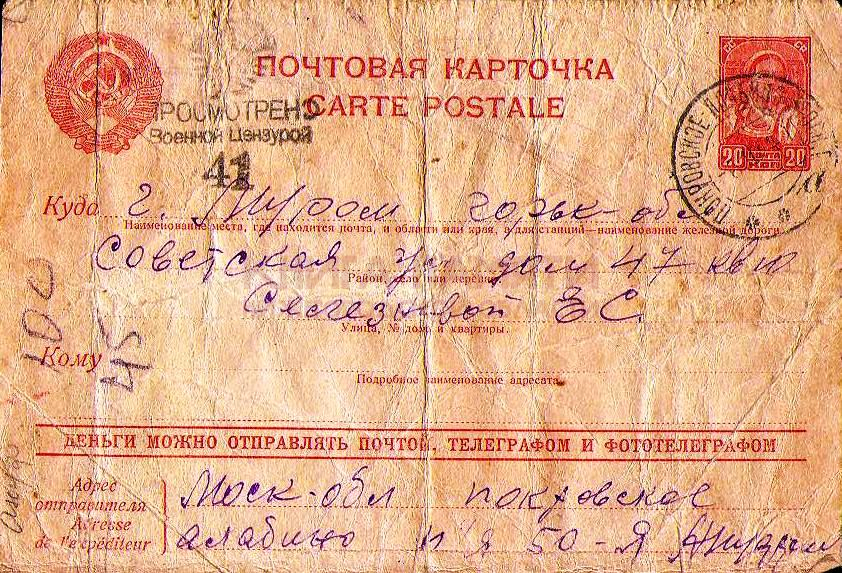 ПОЧТОВАЯ КАРТОЧКА
CARTE POSTALE
ПРОСМОТРЕНО
Военной Цензурой
41
20 ПОЧТА КОП 20
Куда г. Муром горьк-обл
Наименование места, где находится почта, и области или края, а для станций—наименование железной дороги.
Советская ул дом 47 кв 10
Район, село или деревня
Селезневой Е С
Улица, № дома и квартиры.
Кому
Подробное наименование адресата
100
45
ДЕНЬГИ МОЖНО ОТПРАВЛЯТЬ ПОЧТОЙ, ТЕЛЕГРАФОМ И ФОТОТЕЛЕГРАФОМ
Адрес отправителя
Adresse de l'expéditeur
Моск-обл покровское
алабино п/я 50-Я